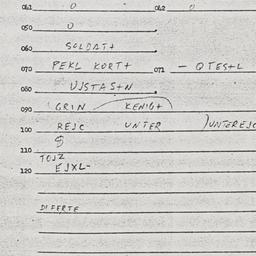 041 0 042 0
050 0
060 SOLDAT+
070 PEKL KORT+ 071 - QTES+L
080 USTAS+N
090 GRIN KENIG+
100 REJC UNTER )UNTEREJC
110 $
TOJZ
120 EJXL-
DIFERTE